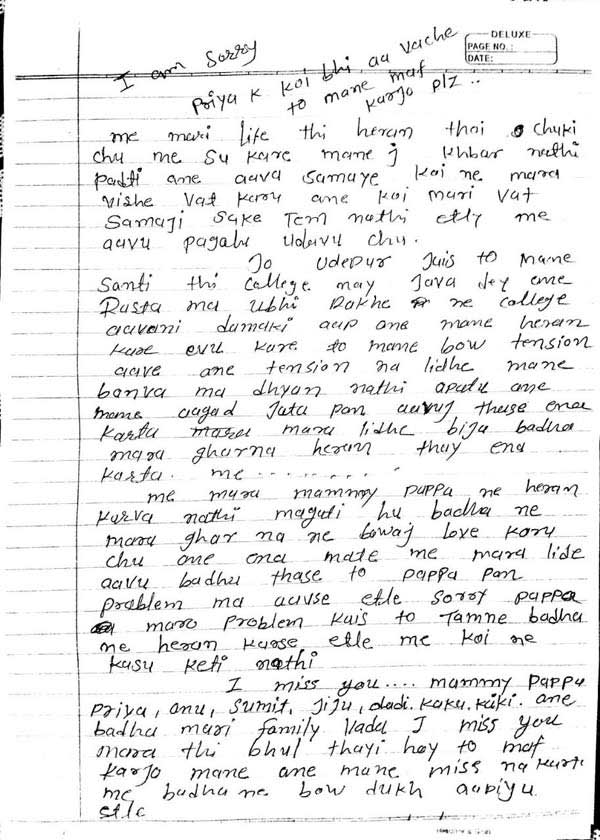 DELUXE
PAGE NO.:
DATE:
I am Sorry
Priya k koi bhi aa vache
to mane maf
karjo plz..
me mari life thi heran thai chuki
chu me su kare mane j khbar nathi
padti ane aava samaye koi ne mara
vishe vat karu ane koi mari vat
samaji sake tem nathi etly me
aavu pagalu udavu chu.
Jo udepur jais to mane
santi thi college may java dey ane
Rasta ma ubhi rakhe ne college
aavani damaki aap ane mane heran
kare evu kare to mane bow tension
aave ane tension na lidhe mane
banva ma dhyan nathi apatu ane
mane aagad jata pan aavuj thase ena
karta mara lidhe bija badha
mara gharna heran thay ena
karta. me
me mara mammy pappa ne heran
karva nathi magati hu badha ne
mara ghar na ne bowaj love karu
chu ane ena mate me mara lide
aavu badhu thase to pappa pan
problem ma aavse etle sorry pappa
maro problem kais to tamne badha
ne heran karse etle me koi ne
kasu keti nathi
I miss you.... mammy pappa
priya, anu, sumit, jiju, dadi. kaka. kaki. ane
badha mari family vada I miss you
mara thi bhul thayi hoy to maf
karjo mane ane mane miss na karta
me badha ne bow dukh aapiyu
etle